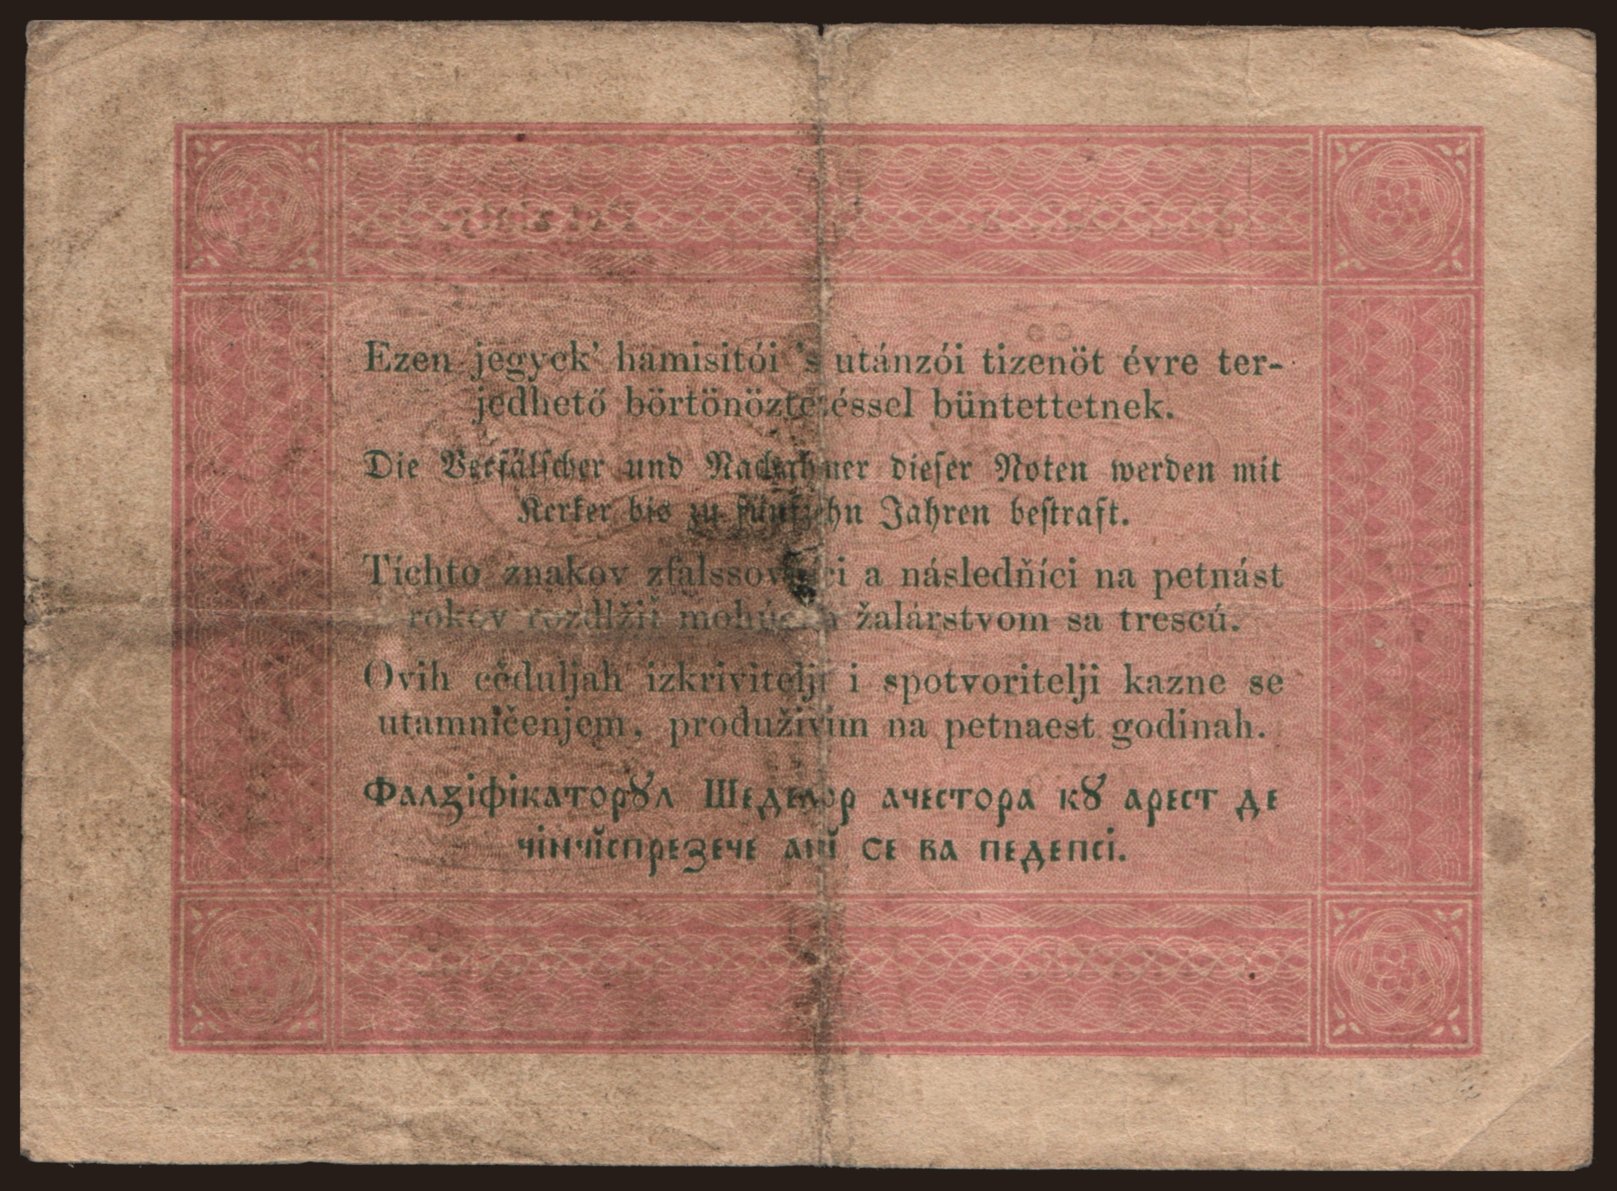 Ezen jegyek’ hamisitói ’s utánzói tizenöt évre ter-
jedhető börtönöztetéssel büntettetnek.
Die Verfälscher und Nachahmer dieser Noten werden mit
Kerker bis zu fünfzehn Jahren bestraft.
Tíchto znakov zfalssovňíci a následňíci na petnást
rokov rozdlžiť mohúcím žalárstvom sa trescú.
Ovih cěduljah izkrivitelji i spotvoritelji kazne se
utamničenjem, produživim na petnaest godinah.
Фалꙁіфікаторꙋл Шеделор ачестора кꙋ арест де
чінчĭспреꙁече анĭ се ва педепсі.